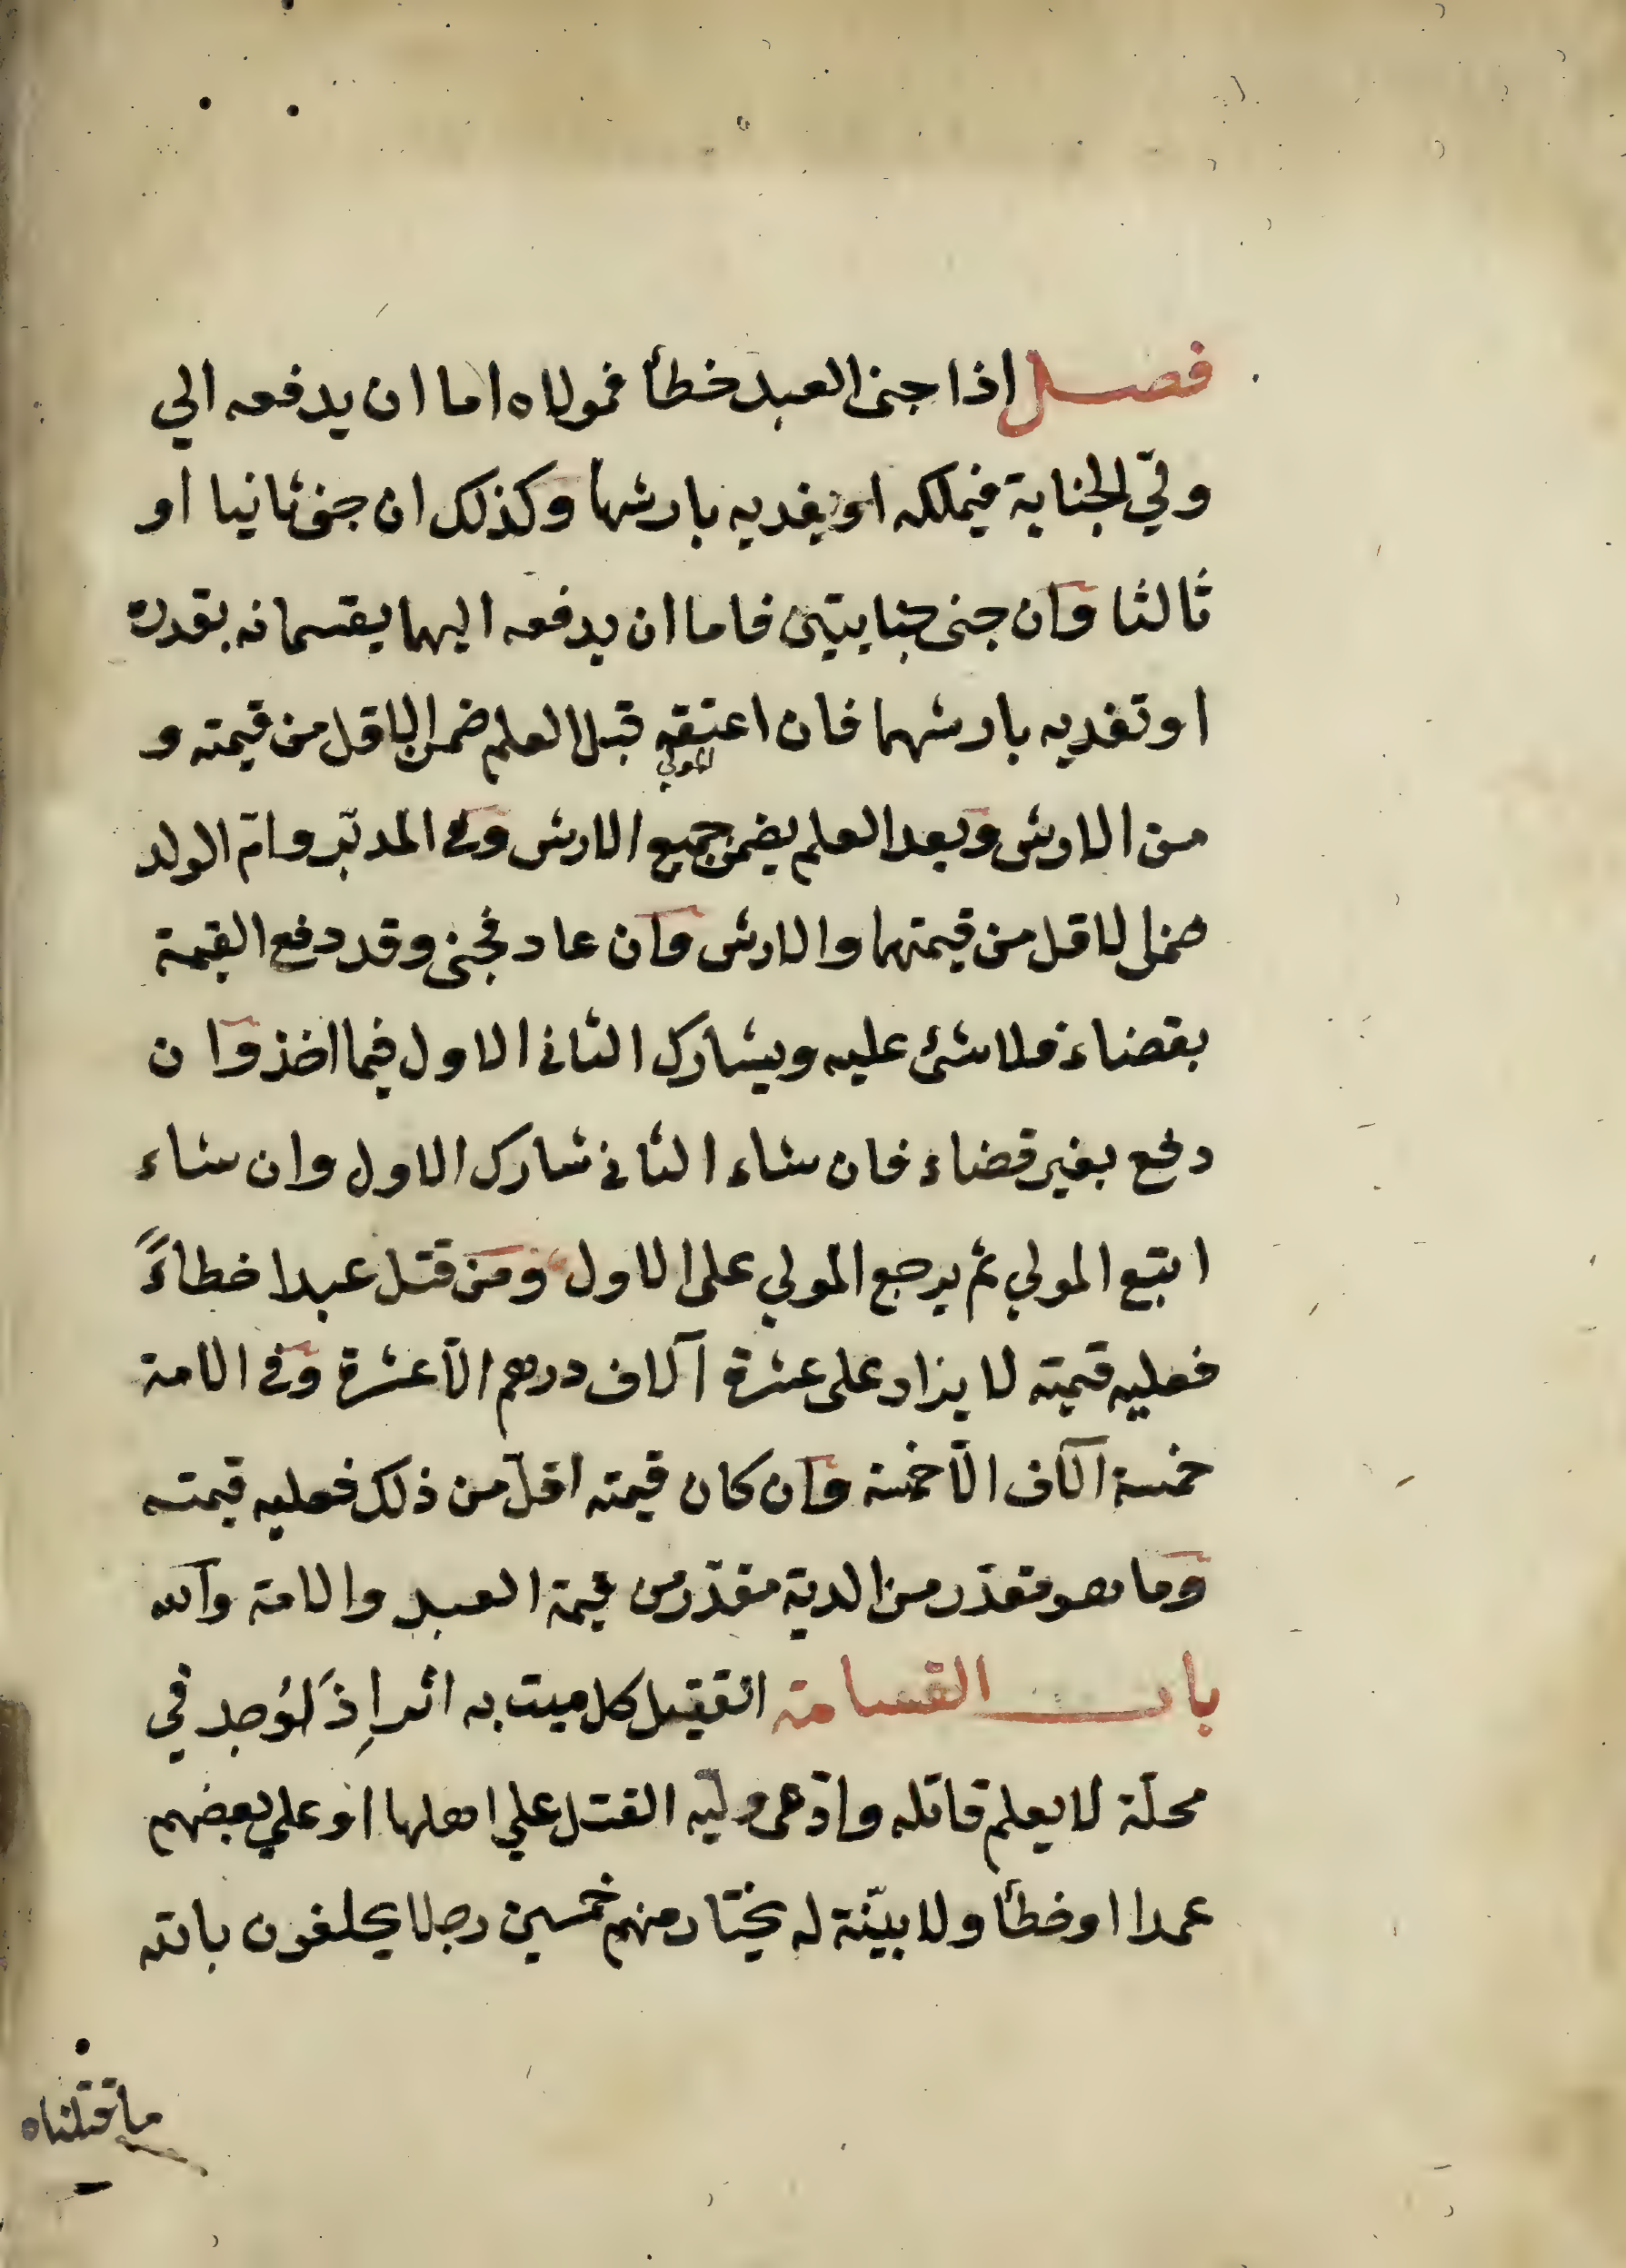 فصل اذا جنى العبد خطأ فمولاه اما ان يدفعه الي
وليّ الجناية فيملكه او يفديه بارشها وكذلك ان جنى ثانيا او
ثالثا وان جنى جنايتين فاما ان يدفعه اليهما يقتسمانه بقدره
او تفديه بارشهما فان اعتقه قبل العلم ضمن الاقل من قيمته و
المولي
من الارش وبعد العلم يضمن جميع الارش وفي المدبّر وامّ الولد
ضمن الاقل من قيمتهما والارش وان عاد فجنى وقد دفع القيمة
بقضاء فلا شئ عليه ويشارك الثاني الاول فيما اخذ وان
دفع بغير قضاء فان شاء الثاني شارك الاول وان شاء
اتبع المولي ثم يرجع المولي على الاول ومن قتل عبدا خطاءً
فعليه قيمته لا يزاد على عشرة آلاف درهم الّا عشرة وفي الامة
خمسة آلاف الّا خمسة وان كان قيمته اقلّ من ذلك فعليه قيمته
وما هو مقدّر من الدية مقدّر من قيمة العبد والامة والله
باب القسامة القتيل كل ميت به اثر اِذَا وُجد في
محلّة لا يعلم قاتله وادّعى وليه القتل علي اهلها او علي بعضهم
عمدا او خطأ ولا بيّنة له يختار منهم خمسين رجلا يحلفون بالله
ما قتلناه